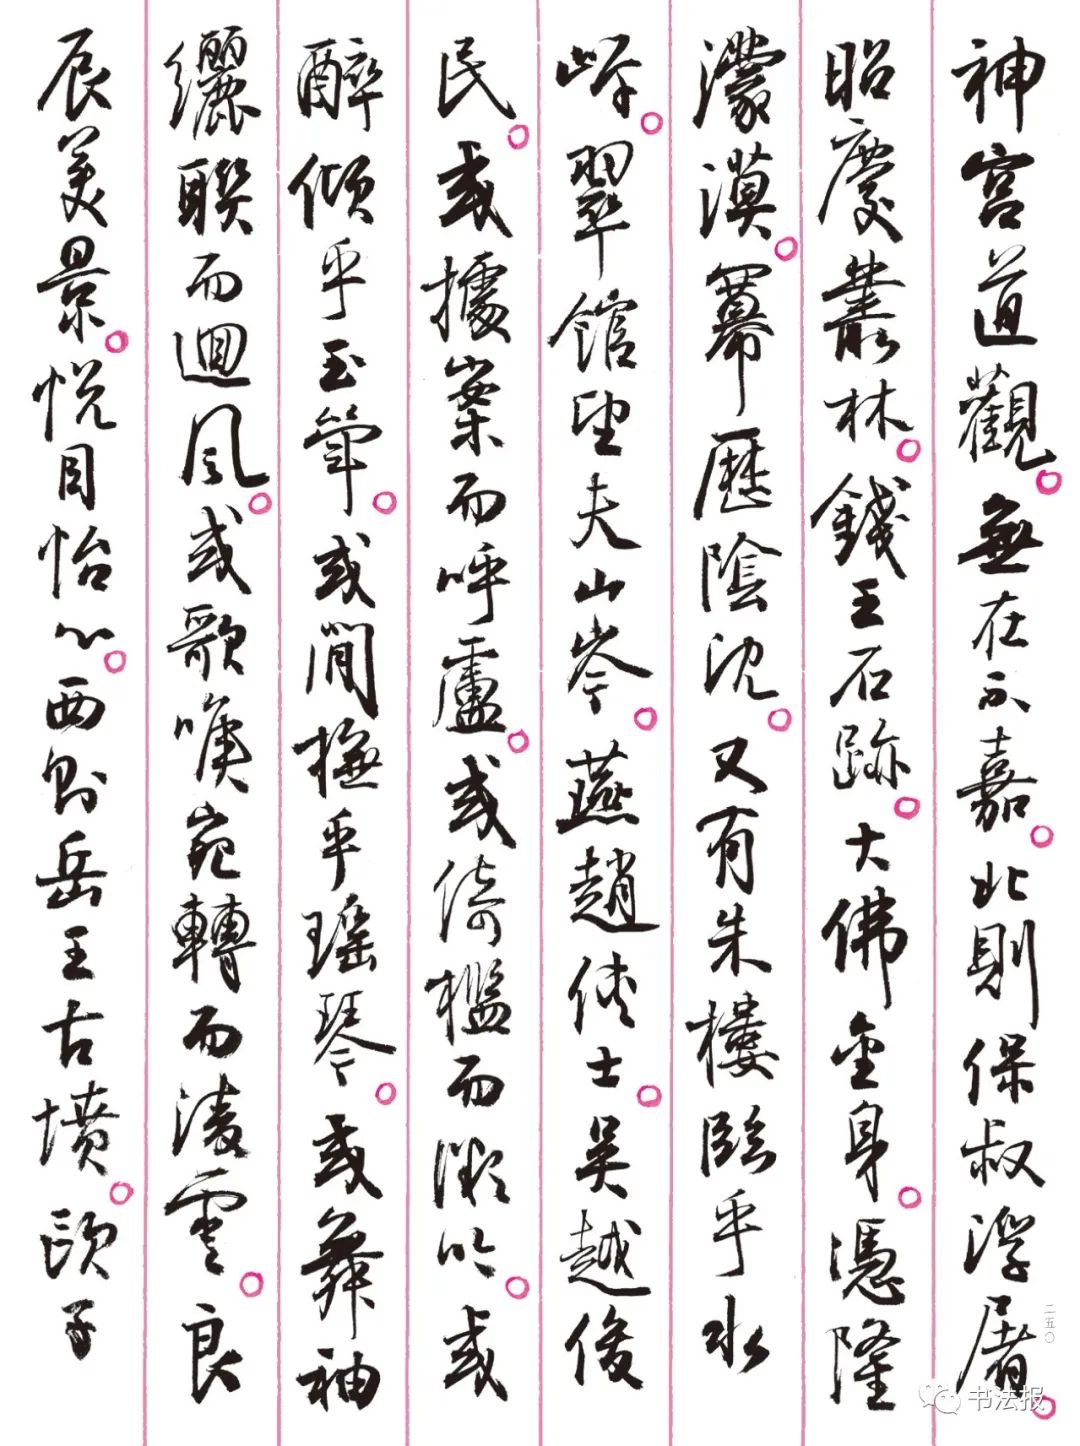 神宮道觀。無在不嘉。北則保叔浮屠。
昭慶叢林。錢王石跡。大佛金身。憑隆
濛漠。冪歷陰沈。又有朱樓臨乎水
岸。翠館望夫山岑。燕趙俠士。吳越俊
民。或據案而呼盧。或倚檻而微吟。或
醉傾乎玉斝。或閒撫乎瑤琴。或舞袖
纚聯而迴風。或歌喉宛轉而淩雲。良
辰美景。悅目怡心。西則岳王古墳。子
二五〇
书法报